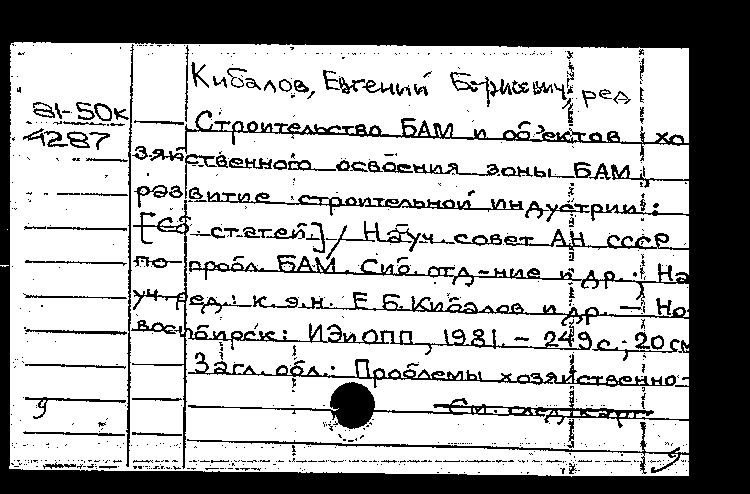 Кибалов, Евгений Борисович, ред
81-50к
4287
Строительство БАМ и объектов хо
зяйственного освоения зоны БАМ,
развитие строительной индустрии :
[Сб. статей] / Науч. совет АН СССР
по пробл. БАМ. Сиб. отд-ние и др. ; На
уч. ред.: к.э.н. Е.Б.Кибалов и др. — Но-
восибирск: ИЭиОПП, 1981. – 249с.; 20см
Загл. обл.: Проблемы хозяйственно-
См. след. карт.
9
9